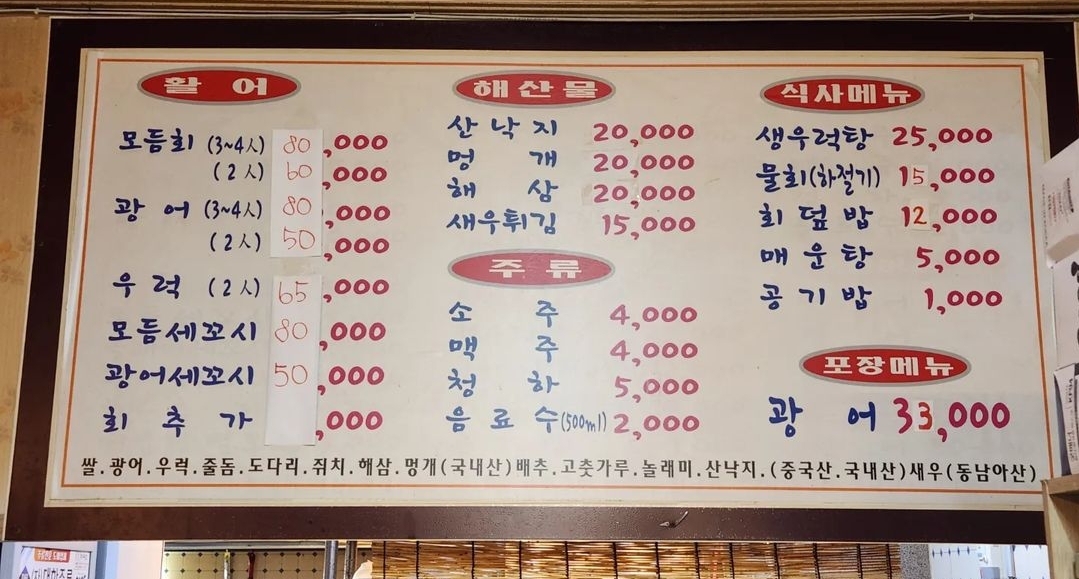 활 어
모듬회 (3~4人) 80,000
(2人) 60,000
광 어 (3~4人) 80,000
(2人) 50,000
우 럭 (2人) 65,000
모듬세꼬시 80,000
광어세꼬시 50,000
회 추 가 ,000
해산물
산 낙 지 20,000
멍 개 20,000
해 삼 20,000
새우튀김 15,000
주 류
소 주 4,000
맥 주 4,000
청 하 5,000
음 료 수(500ml) 2,000
식사메뉴
생우럭탕 25,000
물회(하절기) 15,000
회 덮 밥 12,000
매 운 탕 5,000
공 기 밥 1,000
포장메뉴
광 어 33,000
쌀.광어.우럭.줄돔.도다리.쥐치.해삼.멍개(국내산)배추.고춧가루.놀래미.산낙지.(중국산.국내산)새우(동남아산)